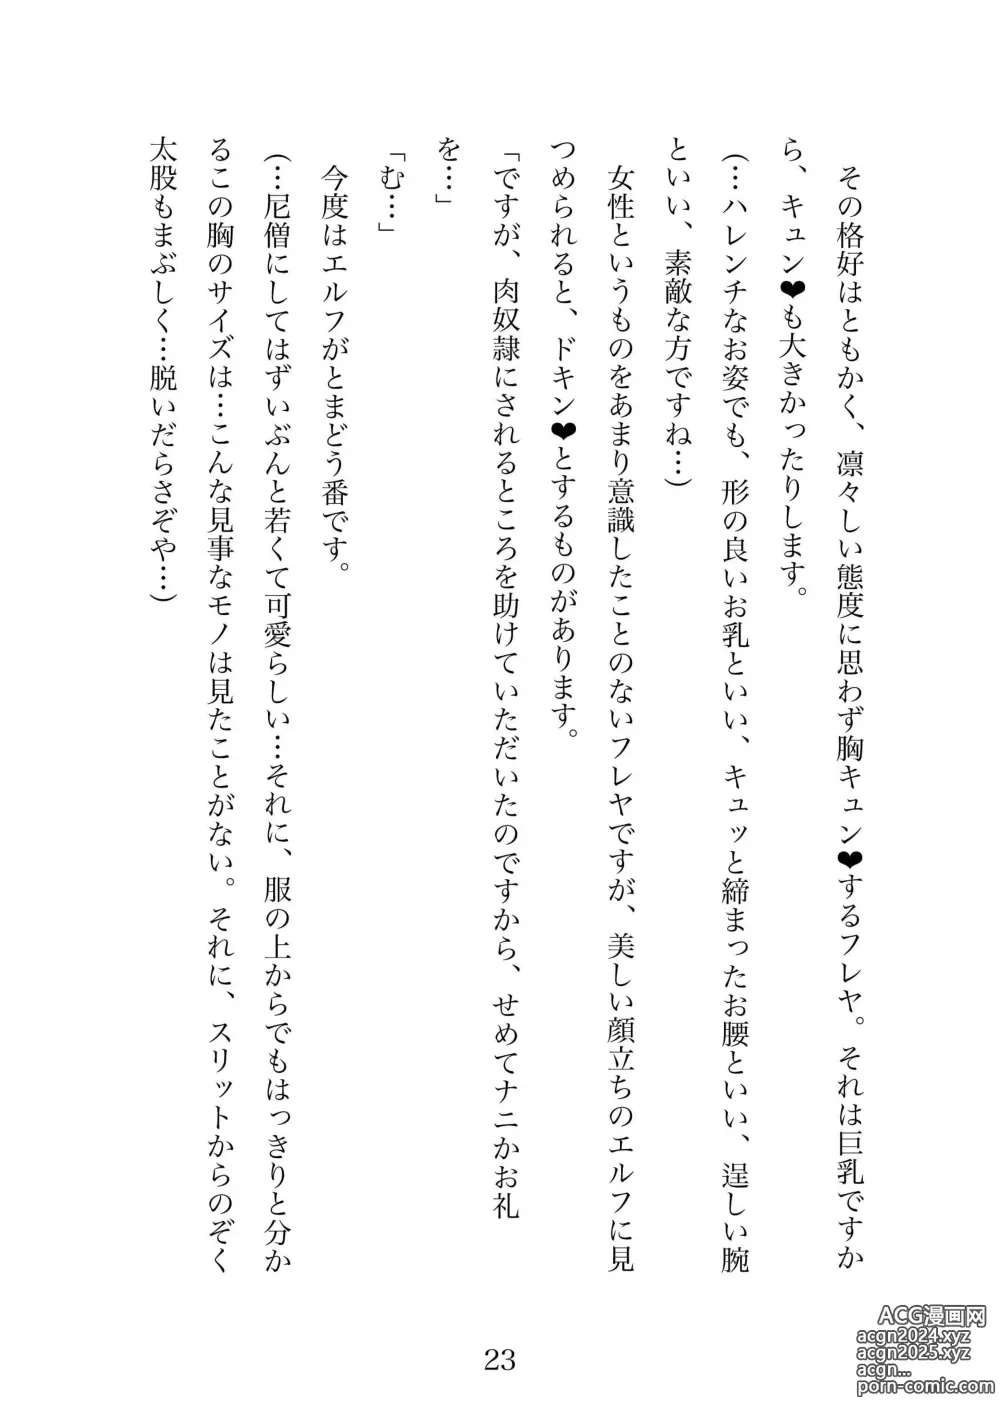 その格好はともかく、凛々しい態度に思わず胸キュン❤するフレヤ。それは巨乳ですか
ら、キュン❤も大きかったりします。
(…ハレンチなお姿でも、形の良いお乳といい、キュッと締まったお腰といい、逞しい腕
といい、素敵な方ですね…)
女性というものをあまり意識したことのないフレヤですが、美しい顔立ちのエルフに見
つめられると、ドキン❤とするものがあります。
「ですが、肉奴隷にされるところを助けていただいたのですから、せめてナニかお礼
を…」
「む…」
今度はエルフがとまどう番です。
(…尼僧にしてはずいぶんと若くて可愛らしい…それに、服の上からでもはっきりと分か
るこの胸のサイズは…こんな見事なモノは見たことがない。それに、スリットからのぞく
太股もまぶしく…脱いだらさぞや…)
23
ACG漫画网
acgn2024.xyz
acgn2025.xyz
acgn...
porn-comic.com